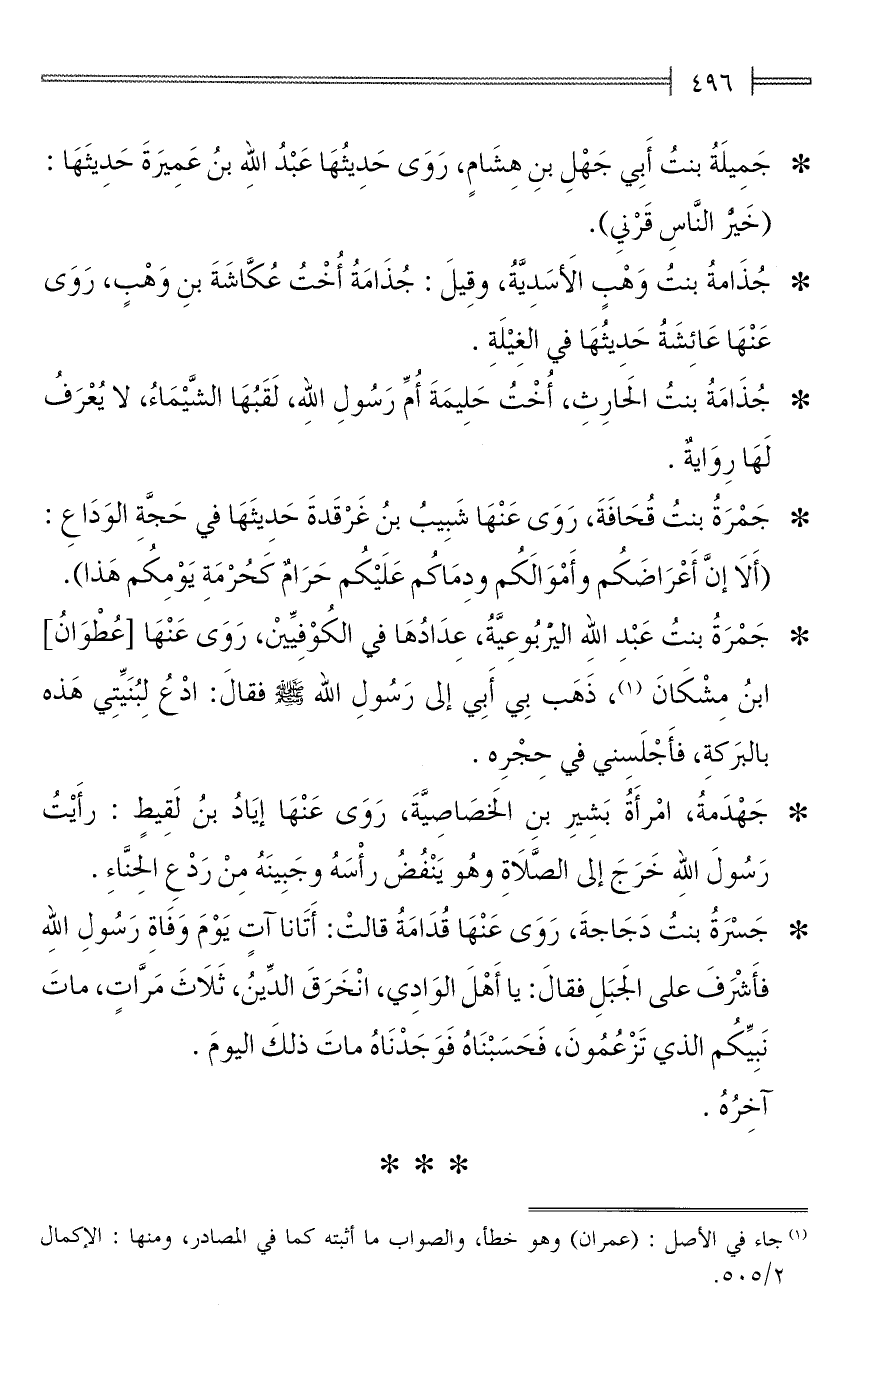 ٤٩٦
* جَمِيلَةُ بنتُ أَبِي جَهْلِ بنِ هِشَامٍ، رَوَى حَدِيثُهَا عَبْدُ اللهِ بنُ عَمِيرَةَ حَدِيثَهَا :
(خَيرُ النَّاسِ قَرْنِي).
* جُذَامةُ بنتُ وَهْبٍ الأَسَدِيَّةُ، وقِيلَ : جُذَامَةُ أُخْتُ عُكَّاشَةَ بنِ وَهْبٍ، رَوَى
عَنْهَا عَائِشَةُ حَدِيثُهَا في الغِيْلَةِ .
* جُذَامَةُ بنتُ الحَارِثِ، أُخْتُ حَلِيمَةَ أُمِّ رَسُولِ اللهِ، لَقَبُهَا الشَّيْمَاءُ، لا يُعْرَفُ
لَهَا رِوَايةٌ .
* جَمْرَةُ بنتُ قُحَافَةَ، رَوَى عَنْهَا شَبِيبُ بنُ غَرْقَدةَ حَدِيثَهَا في حَجَّةِ الوَدَاعِ :
(أَلَا إنَّ أَعْرَاضَكُم وأَمْوَالَكُم ودِمَاكُم عَلَيْكُم حَرَامٌ كَحُرْمَةِ يَوْمِكُم هَذا).
* جَمْرَةُ بنتُ عَبْدِ اللهِ اليَرْبُوعِيَّةُ، عِدَادُهَا في الكُوْفِيِّيْنَ، رَوَى عَنْهَا [عُطْوَانُ]
ابنُ مِشْكَانَ (١)، ذَهَب بِي أَبِي إلى رَسُولِ اللهِ ﷺ فقالَ: ادْعُ لِبُنَيَّتِي هَذه
بالبَرَكةِ، فأَجْلَسنِي في حِجْرِه .
* جَهْدَمةُ، امْرأَةُ بَشِيرِ بنِ الخَصَاصِيَّةَ، رَوَى عَنْهَا إيَادُ بنُ لَقِيطٍ : رأَيْتُ
رَسُولَ اللهِ خَرَجَ إلى الصَّلَاةِ وهُو يَنْفُضُ رأْسَهُ وجَبِينَهُ مِنْ رَدْعِ الحِنَّاءِ .
* جَسْرَةُ بنتُ دَجَاجةَ، رَوَى عَنْهَا قُدَامَةُ قالتْ: أَتَانا آتٍ يَوْمَ وَفَاةِ رَسُولِ اللهِ
فأَشْرَفَ على الجَبَلِ فقالَ: يا أَهْلَ الوَادِي، انْخَرَقَ الدِّينُ، ثَلَاثَ مَرَّاتٍ، ماتَ
نَبِيِّكُم الذي تَزْعُمُونَ، فَحَسَبْنَاهُ فَوَجَدْنَاهُ ماتَ ذلكَ اليومَ .
آخِرُهُ .
* * *
(١) جاء في الأصل : (عمران) وهو خطأ، والصواب ما أثبته كما في المصادر، ومنها : الإكمال
٥٠٥/٢.